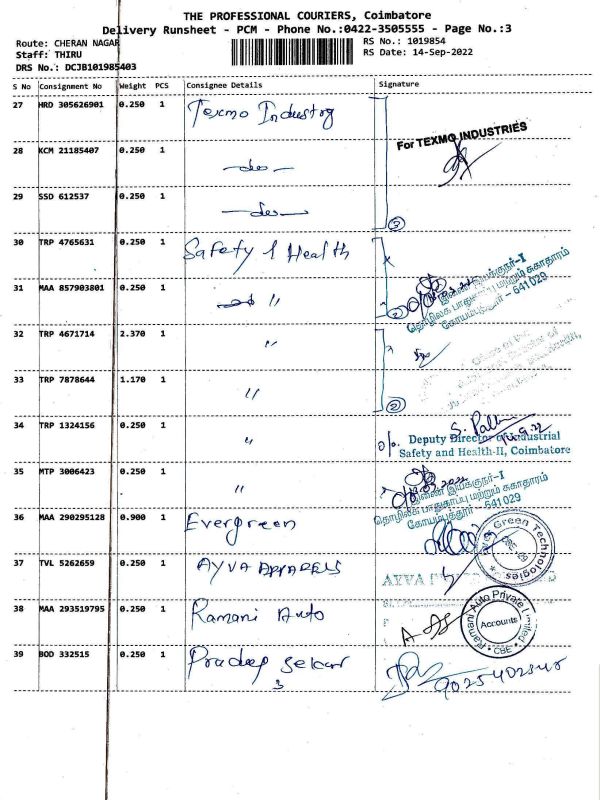 THE PROFESSIONAL COURIERS, Coimbatore
Delivery Runsheet - PCM - Phone No.:0422-3505555 - Page No.:3
Route: CHERAN NAGAR
RS No.: 1019854
Staff: THIRU
RS Date: 14-Sep-2022
DRS No.: DCJB101985403
S No Consignment No Weight PCS Consignee Details Signature
27 HRD 305626901 0.250 1 Texmo Industry
For TEXMO INDUSTRIES
28 KCM 21185407 0.250 1 —do—
29 SSD 612537 0.250 1 —do—
3
30 TRP 4765631 0.250 1 Safety & Health
31 MAA 857903801 0.250 1 〃
இணை இயக்குநர்-I
தொழிலக பாதுகாப்பு மற்றும் சுகாதாரம்
கோயம்புத்தூர் - 641 029
2
32 TRP 4671714 2.370 1 〃
33 TRP 7878644 1.170 1 〃
2
34 TRP 1324156 0.250 1 〃
Deputy Director of Industrial
Safety and Health-II, Coimbatore
35 MTP 3006423 0.250 1 〃
இணை இயக்குநர்-I
தொழிலக பாதுகாப்பு மற்றும் சுகாதாரம்
கோயம்புத்தூர் - 641 029
36 MAA 290295128 0.900 1 Evergreen
Green Technologies
37 TVL 5262659 0.250 1 AYVA APPARELS
AYVA
38 MAA 293519795 0.250 1 Ramani Auto
Ramani Auto Private Limited
Accounts
CBE
39 BOD 332515 0.250 1 Pradeep Sekar